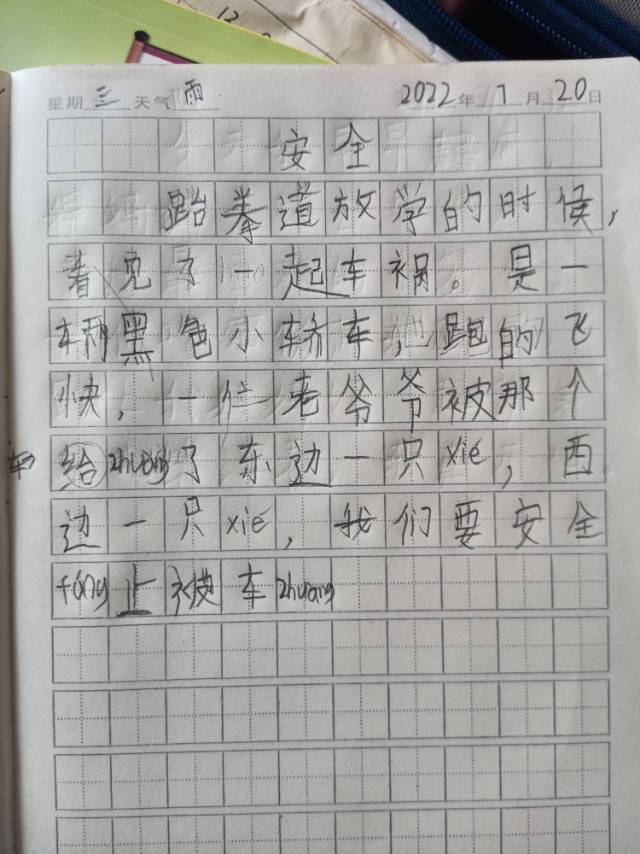 星期三 天气雨 2022年7月20日
安全
跆拳道放学的时候，
看见了一起车祸。是一
辆黑色小轿车，跑的飞
快，一位老爷爷被那个
车给zhuang了东边一只xié，西
边一只xié，我们要安全
fáng止被车zhuang